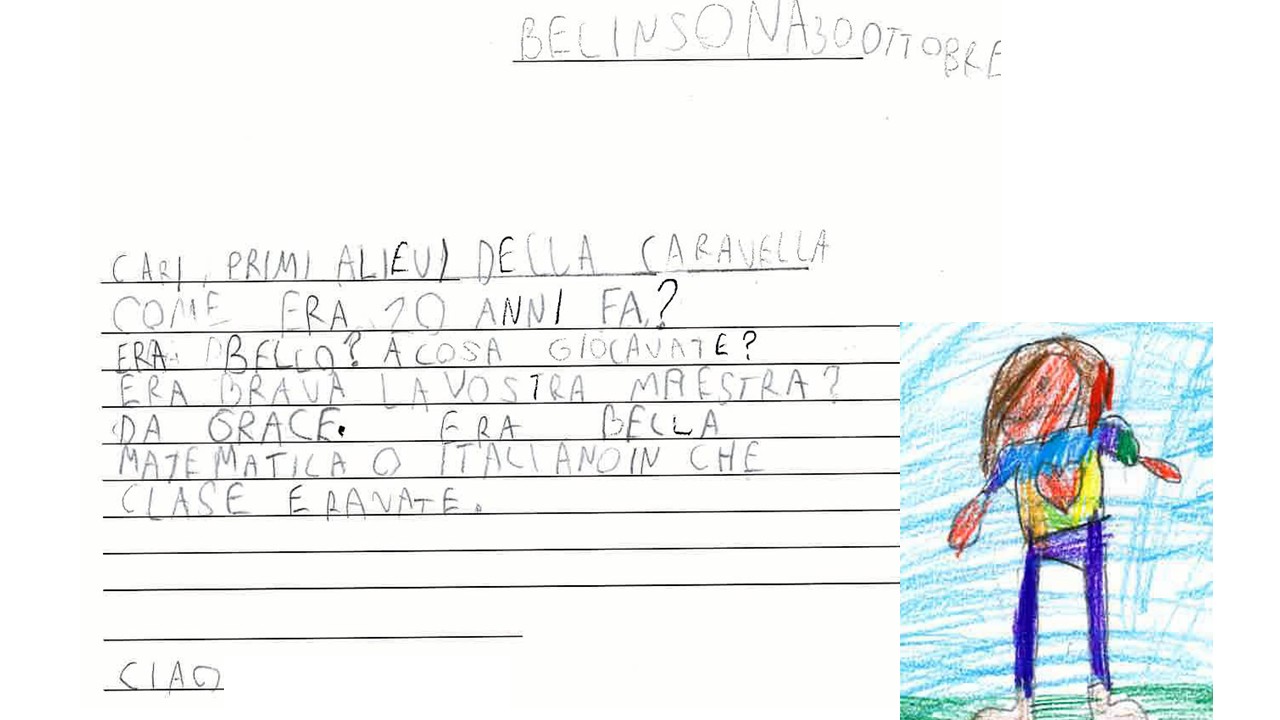 BELINSONA 30 OTTOBRE
CARI, PRIMI ALIEVI DELLA CARAVELLA
COME ERA 20 ANNI FA?
ERA BELLO? A COSA GIOCAVATE?
ERA BRAVA LA VOSTRA MAESTRA?
DA GRACE. ERA BELLA
MATEMATICA O ITALIANOIN CHE
CLASE ERAVATE.
CIAO